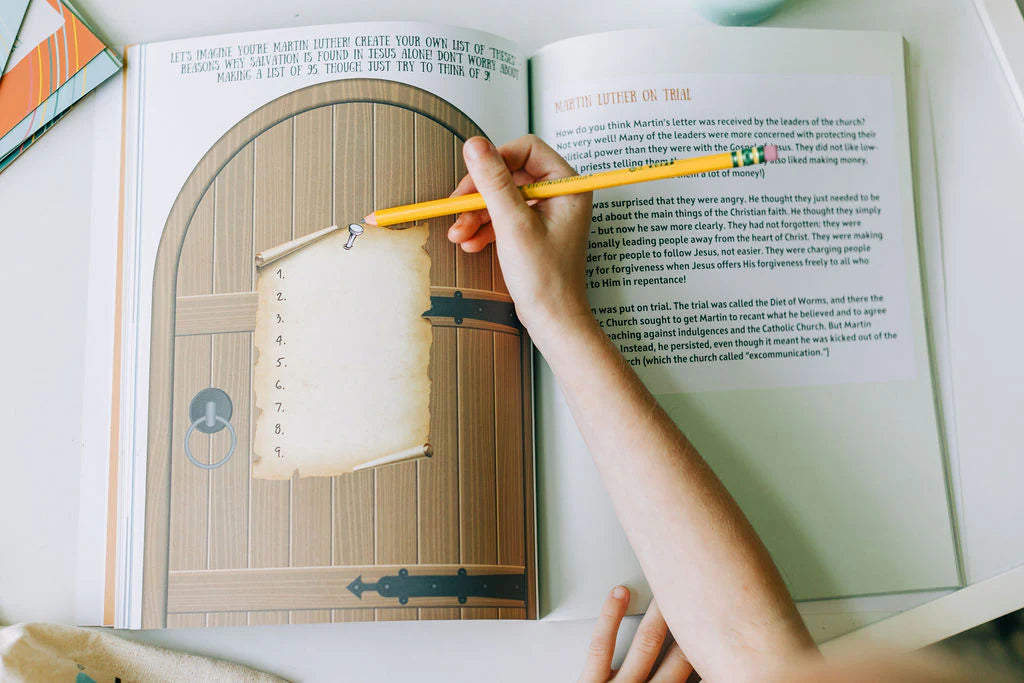 LET'S IMAGINE YOU'RE MARTIN LUTHER! CREATE YOUR OWN LIST OF "THESES",
REASONS WHY SALVATION IS FOUND IN JESUS ALONE! DON'T WORRY ABOUT
MAKING A LIST OF 95, THOUGH, JUST TRY TO THINK OF 9!
1.
2.
3.
4.
5.
6.
7.
8.
9.
MARTIN LUTHER ON TRIAL
How do you think Martin's letter was received by the leaders of the church?
Not very well! Many of the leaders were more concerned with protecting their
political power than they were with the Gospel of Jesus. They did not like low-
priests telling them also liked making money.
them a lot of money!)
was surprised that they were angry. He thought they just needed to be
about the main things of the Christian faith. He thought they simply
– but now he saw more clearly. They had not forgotten; they were
leading people away from the heart of Christ. They were making
for people to follow Jesus, not easier. They were charging people
for forgiveness when Jesus offers His forgiveness freely to all who
to Him in repentance!
was put on trial. The trial was called the Diet of Worms, and there the
Church sought to get Martin to recant what he believed and to agree
against indulgences and the Catholic Church. But Martin
Instead, he persisted, even though it meant he was kicked out of the
(which the church called "excommunication.")